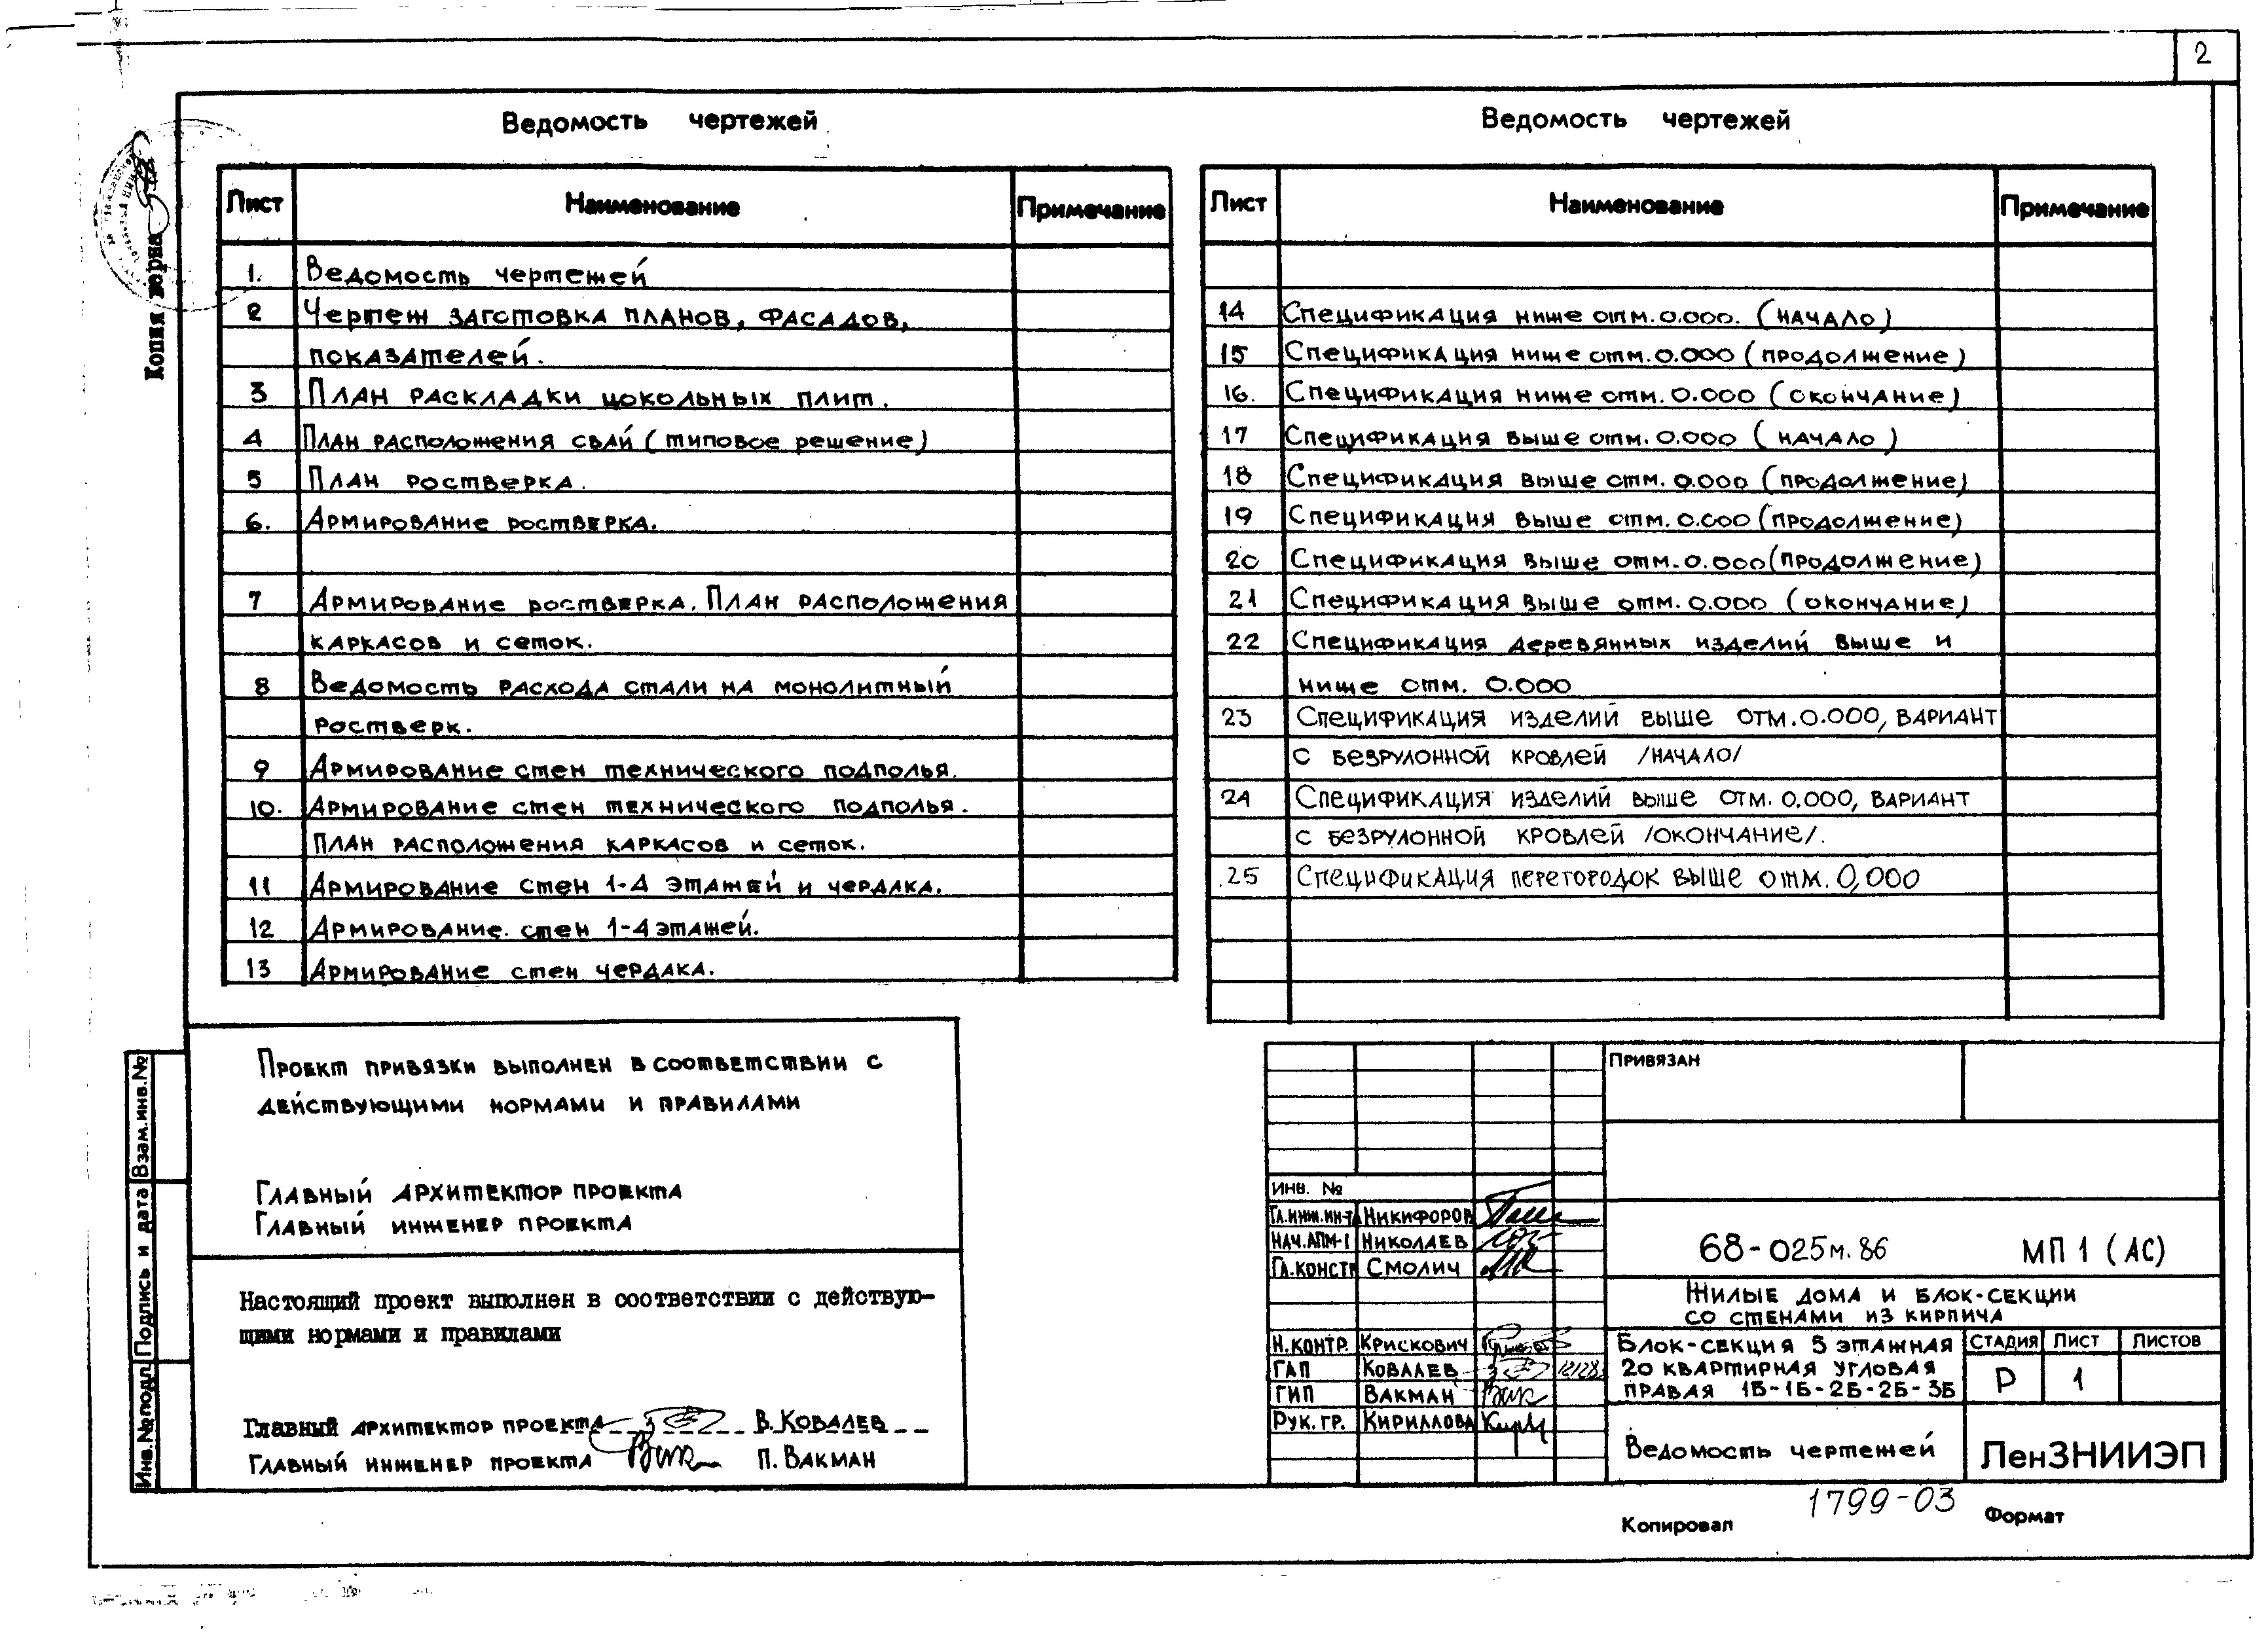 2
Ведомость чертежей
Лист Наименование Примечание
1. Ведомость чертежей
2 Чертеж заготовка планов, фасадов,
показателей.
3 План раскладки цокольных плит.
4 План расположения свай (типовое решение)
5 План ростверка.
6. Армирование ростверка.
7 Армирование ростверка. План расположения
каркасов и сеток.
8 Ведомость расхода стали на монолитный
ростверк.
9 Армирование стен технического подполья.
10. Армирование стен технического подполья.
План расположения каркасов и сеток.
11 Армирование стен 1-4 этажей и чердака.
12 Армирование. стен 1-4 этажей.
13 Армирование стен чердака.
Ведомость чертежей
Лист Наименование Примечание
14 Спецификация ниже отм. 0.000. (начало)
15 Спецификация ниже отм. 0.000 (продолжение)
16. Спецификация ниже отм. 0.000 (окончание)
17 Спецификация выше отм. 0.000 (начало)
18 Спецификация выше отм. 0.000 (продолжение)
19 Спецификация выше отм. 0.000 (продолжение)
20 Спецификация выше отм. 0.000 (продолжение)
21 Спецификация выше отм. 0.000 (окончание)
22 Спецификация деревянных изделий выше и
ниже отм. 0.000
23 Спецификация изделий выше отм. 0.000, вариант
с безрулонной кровлей /начало/
24 Спецификация изделий выше отм. 0.000, вариант
с безрулонной кровлей /окончание/.
25 Спецификация перегородок выше отм. 0,000
Копия верна
Проект привязки выполнен в соответствии с
действующими нормами и правилами
Главный архитектор проекта
Главный инженер проекта
Настоящий проект выполнен в соответствии с действую-
щими нормами и правилами
Главный архитектор проекта В. Ковалев
Главный инженер проекта П. Вакман
Инв.№подл. Подпись и дата Взам.инв.№
Привязан
Инв. №
Гл.инж.ин-та Никифоров
Нач.АПМ-1 Николаев
Гл.констр Смолич
Н.контр. Крискович
ГАП Ковалев
ГИП Вакман
Рук. гр. Кириллова
68-025м.86 МП 1 (АС)
Жилые дома и блок-секции
со стенами из кирпича
Блок-секция 5 этажная
20 квартирная угловая
правая 1Б-1Б-2Б-2Б-3Б
Стадия Лист Листов
Р 1
Ведомость чертежей
ЛенЗНИИЭП
1799-03
Копировал Формат